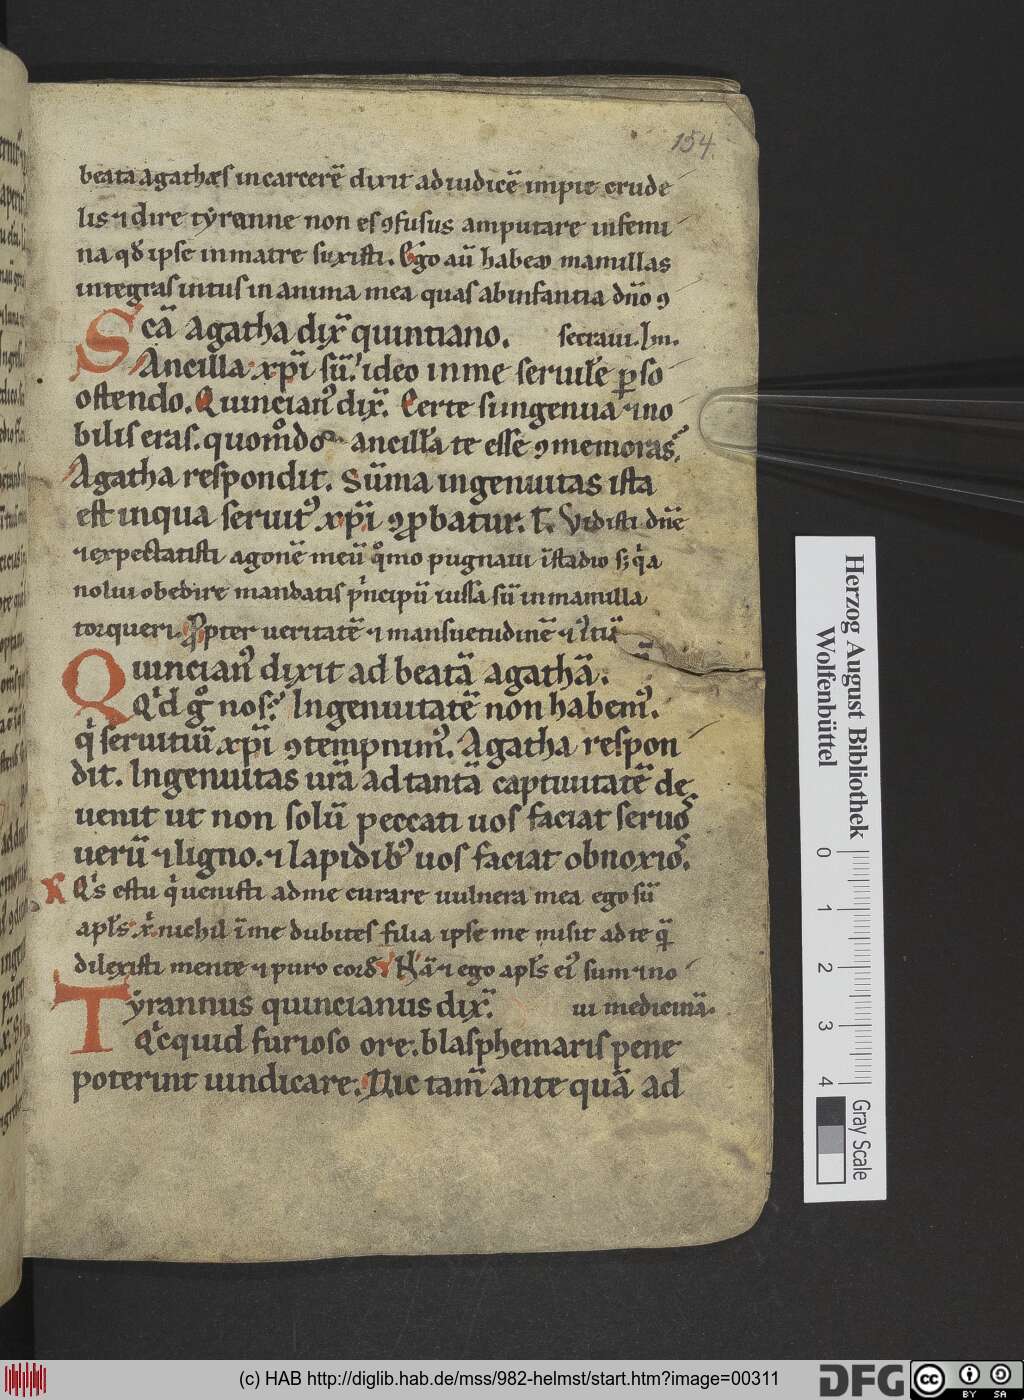 154
beata agathæs incarcerē dixit ad iudicē impie crude
lis ⁊ dire tẏranne non es ꝯfusus amputare in femi
na qd̄ ipse in matre suxisti. Ego aū habeo mamillas
integras intus in anima mea quas ab infantia dn̄o ꝯ
Sc̄a agatha dix̄ quintiano. secraui. Im.
Ancilla xp̄i sū. ideo in me seruilē ꝑso
ostendo. Quincianꝰ dix̄. Certe si ingenua ⁊ no
bilis eras. quom̊do ancillā te esse ꝯmemoras.
Agatha respondit. Sūma ingenuitas ista
est in qua seruitꝰ xp̄i ꝯꝓbatur. Vidisti dn̄e
⁊ expectasti agonē meū qͦmo pugnaui ī stadio sꝫ qͥa
nolui obedire mandatis pͥncipū iussa sū in mamilla
torqueri. Ꝓpter ueritatē ⁊ mansuetudinē ⁊
Quincianꝰ dixit ad beatā agathā.
Qͥd gͦ nos. Ingenuitatē non habemꝰ.
qͥ seruitiū xp̄i ꝯtempnimꝰ. Agatha respon
dit. Ingenuitas ur̄a ad tantā captiuitatē de
uenit ut non solū peccati uos faciat seruos
uerū ⁊ ligno. ⁊ lapidibꝰ uos faciat obnoxios.
Qͥs es tu qͥ uenisti ad me curare uulnera mea ego sū
apl̄s xͥ nichil ī me dubites filia ipse me misit ad te quā
dilexisti mente ⁊ puro cord ⁊ ego apl̄s eiꝰ sum ⁊ no
Tẏrannus quincianus dix̄. ui medicinā.
Qͥcquid furioso ore. blasphemaris pene
poterint uindicare. Dic tam̄ ante quā ad
Herzog August Bibliothek
Wolfenbüttel
0 1 2 3 4
Gray Scale
(c) HAB http://diglib.hab.de/mss/982-helmst/start.htm?image=00311
DFG
cc BY SA